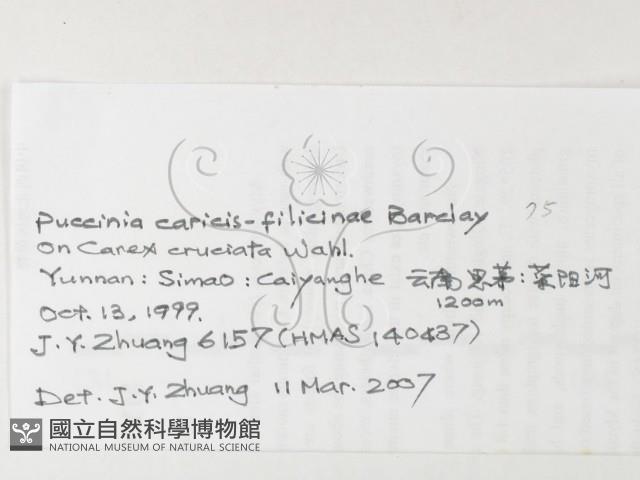 Puccinia caricis-filicinae Barclay 75
on Carex cruciata Wahl.
Yunnan: Simao: Caiyanghe 云南思茅:菜阳河
1200m
Oct. 13, 1999.
J.Y. Zhuang 6157 (HMAS 140437)
Det. J.Y. Zhuang 11 Mar. 2007
國立自然科學博物館
NATIONAL MUSEUM OF NATURAL SCIENCE